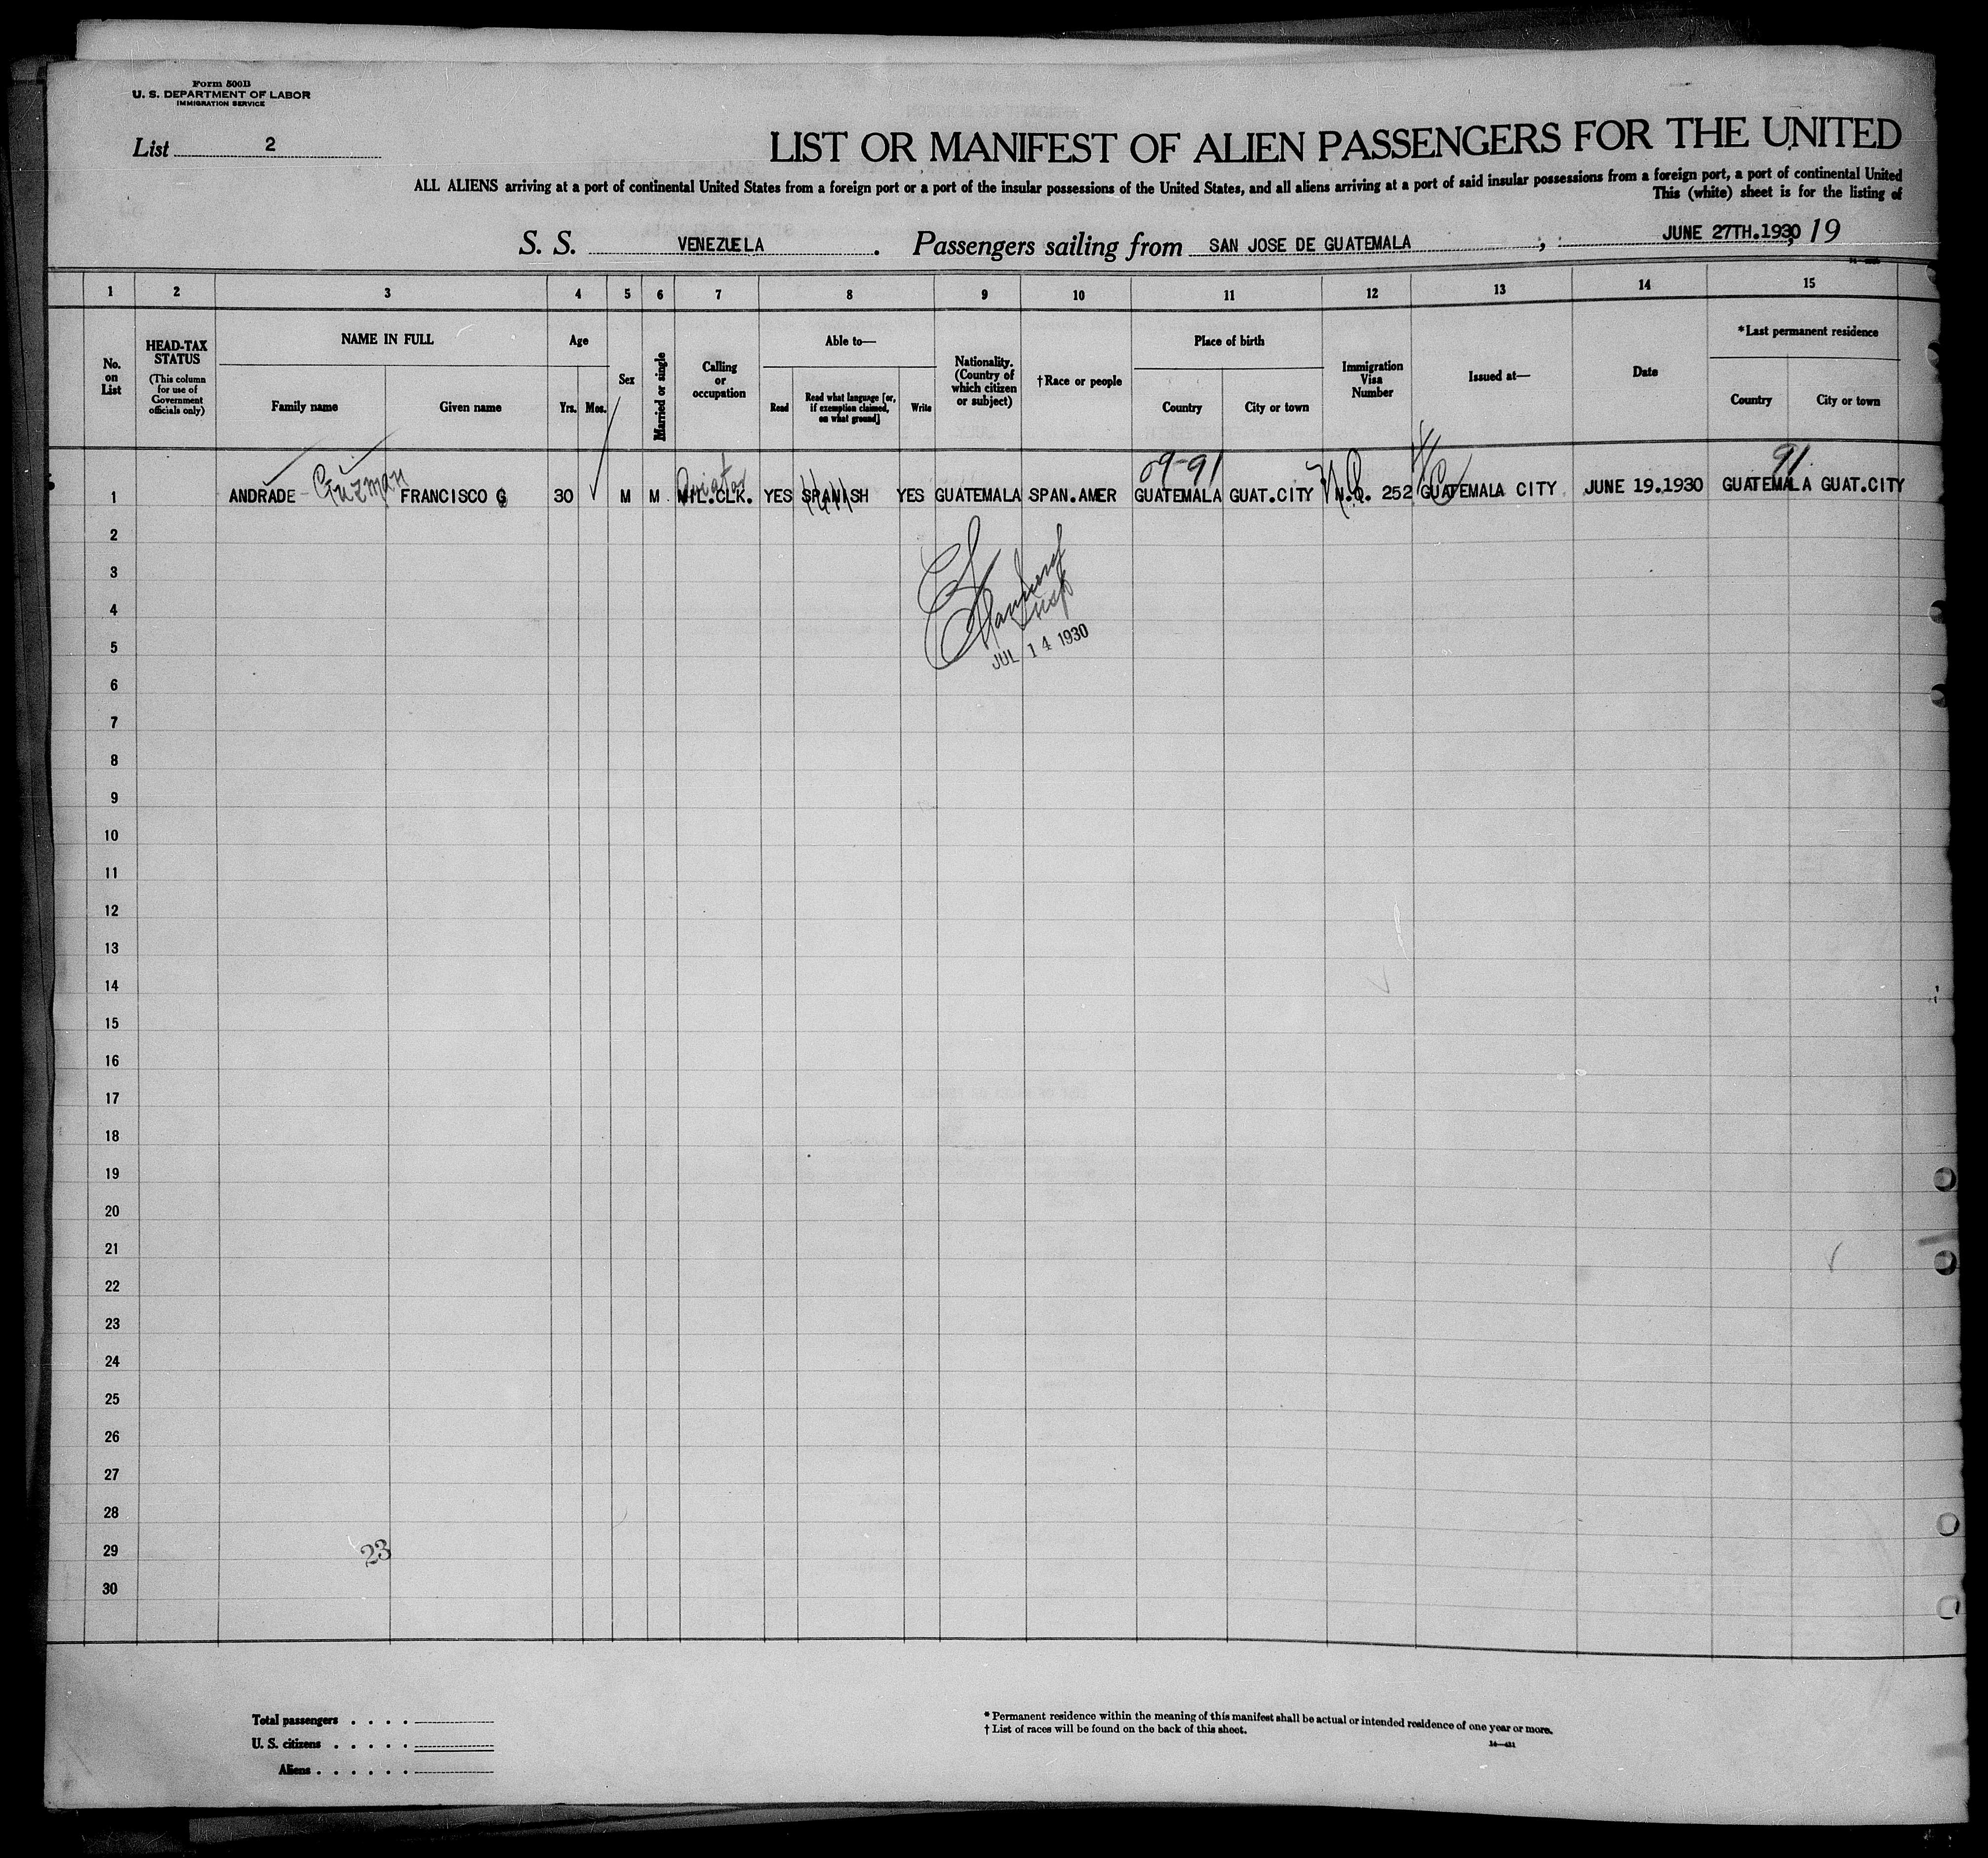 Form 500B
U. S. DEPARTMENT OF LABOR
IMMIGRATION SERVICE
List 2
LIST OR MANIFEST OF ALIEN PASSENGERS FOR THE UNITED
ALL ALIENS arriving at a port of continental United States from a foreign port or a port of the insular possessions of the United States, and all aliens arriving at a port of said insular possessions from a foreign port, a port of continental United
This (white) sheet is for the listing of
S. S. VENEZUELA. Passengers sailing from SAN JOSE DE GUATEMALA, JUNE 27TH.1930, 19
1 2 3 4 5 6 7 8 9 10 11 12 13 14 15
No. on List
HEAD-TAX STATUS
(This column for use of Government officials only)
NAME IN FULL
Family name Given name
Age
Yrs. Mos.
Sex
Married or single
Calling or occupation
Able to—
Read
Read what language [or, if exemption claimed, on what ground]
Write
Nationality. (Country of which citizen or subject)
†Race or people
Place of birth
Country City or town
Immigration Visa Number
Issued at—
Date
*Last permanent residence
Country City or town
Guzman Aviator 09-91 91
1 ANDRADE FRANCISCO G 30 M M MIL.CLK. YES SPANISH YES GUATEMALA SPAN.AMER GUATEMALA GUAT.CITY N.Q. 252 GUATEMALA CITY JUNE 19.1930 GUATEMALA GUAT.CITY
2
3
4
Insp
5
JUL 14 1930
6
7
8
9
10
11
12
13
14
15
16
17
18
19
20
21
22
23
24
25
26
27
28
29
23
30
Total passengers . . . .
U. S. citizens . . . . .
Aliens . . . . . .
* Permanent residence within the meaning of this manifest shall be actual or intended residence of one year or more.
† List of races will be found on the back of this sheet.